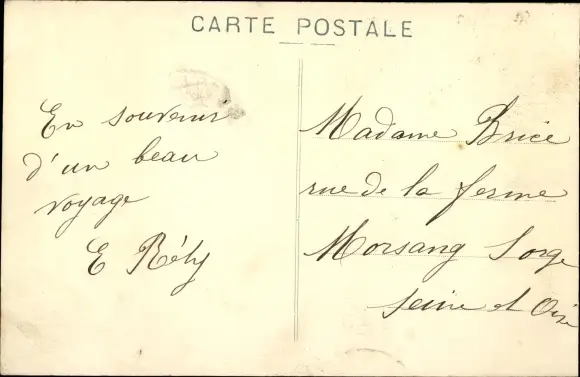 CARTE POSTALE
En souvenir
d'un beau
voyage
E Réty
Madame Brice
rue de la ferme
Morsang Sorge
Seine et Oise